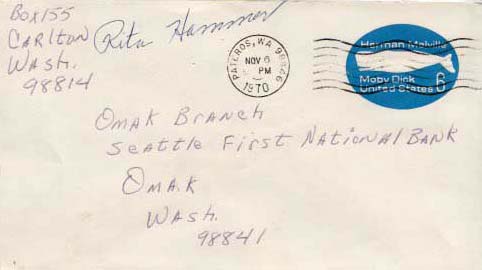 Box 155
Carlton
Wash.
98814
Rita Hammer
PATEROS, WA 98846
NOV 6
PM
1970
Herman Melville
Moby Dick
United States 6
Omak Branch
Seattle First National Bank
Omak
Wash.
98841